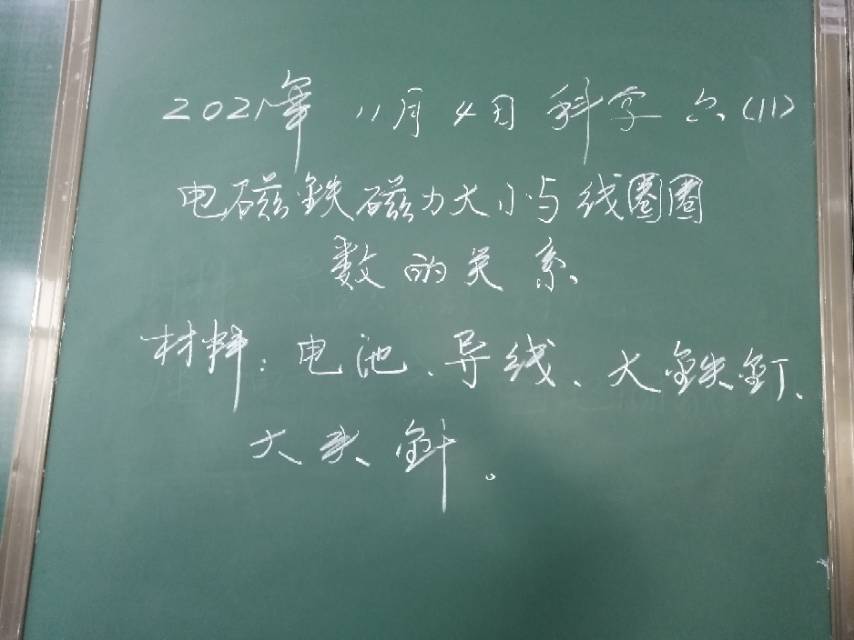 2021年 11月4日 科学 六(11)
电磁铁磁力大小与线圈圈
数的关系
材料：电池、导线、大铁钉、
大头针。